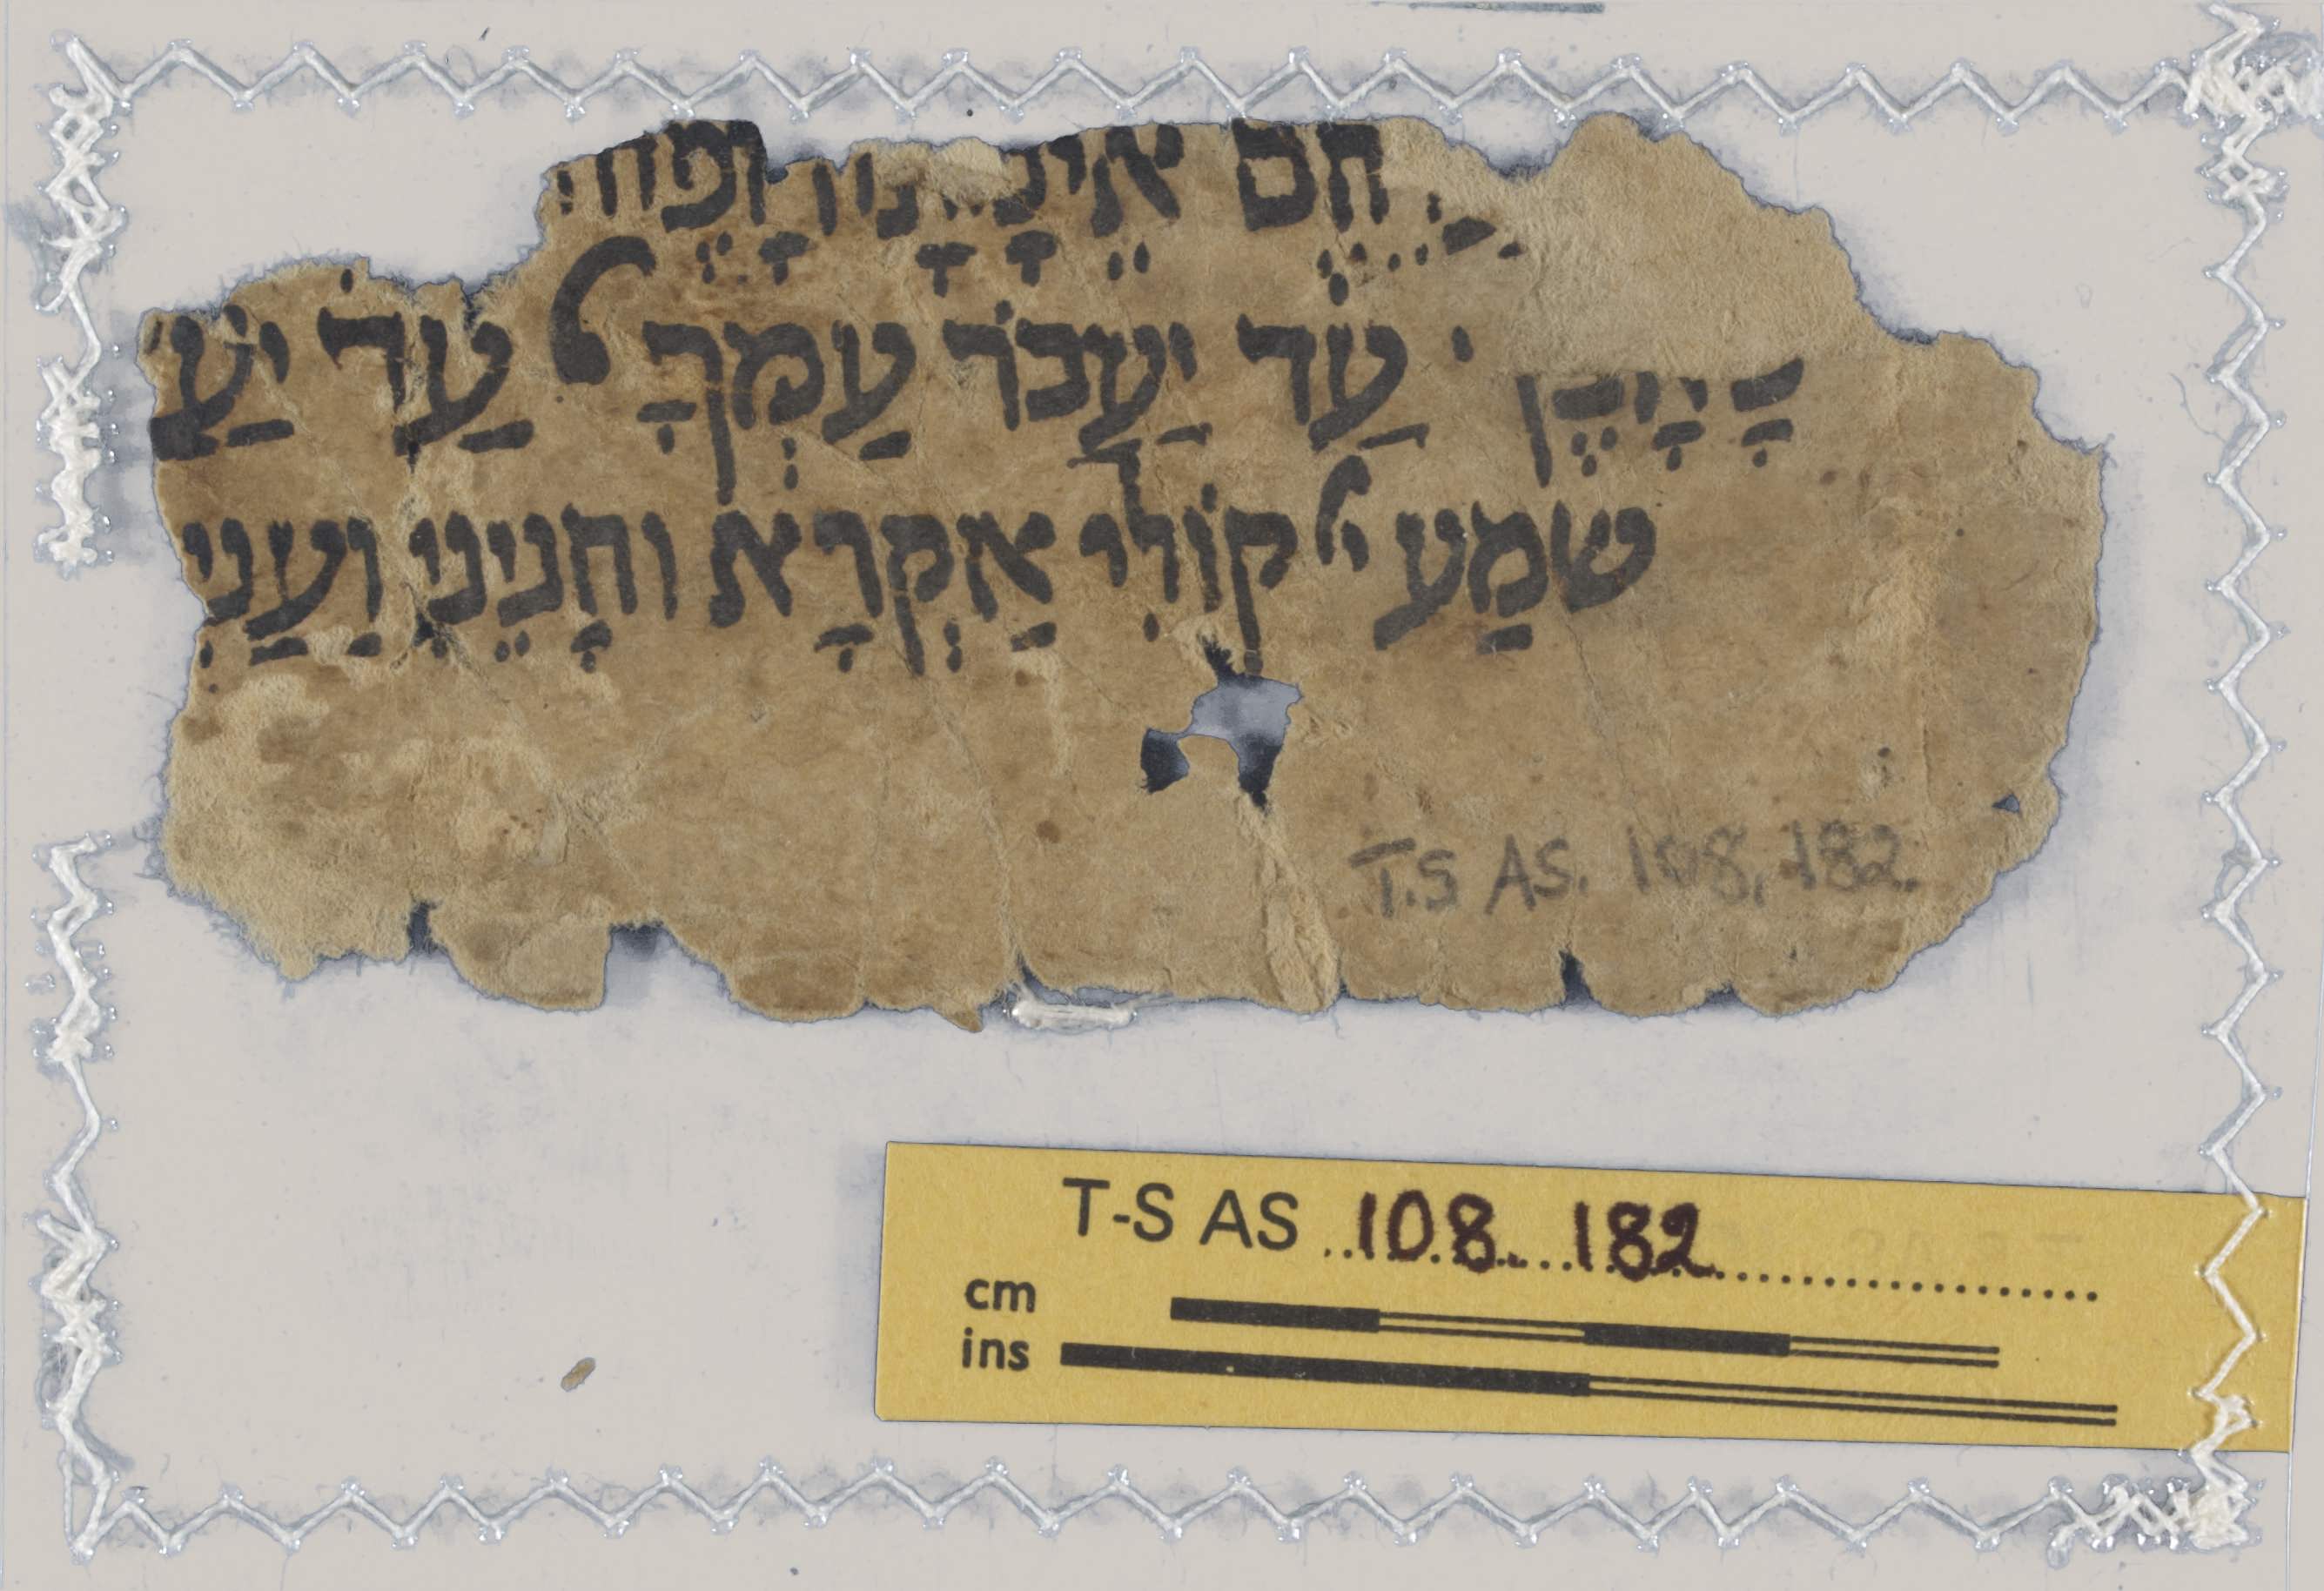 הֶם אֵימָתָה וָפֶח
כָּאָבֶן · עַד יַעֲבֹר עַמְךָ יי עַד יַעֲ
שמַע יי קוֹלִי אַקְרָא וחָנֵינִי וַעַנֵי
T.S AS. 108, 182.
T-S AS 108. 182
cm
ins